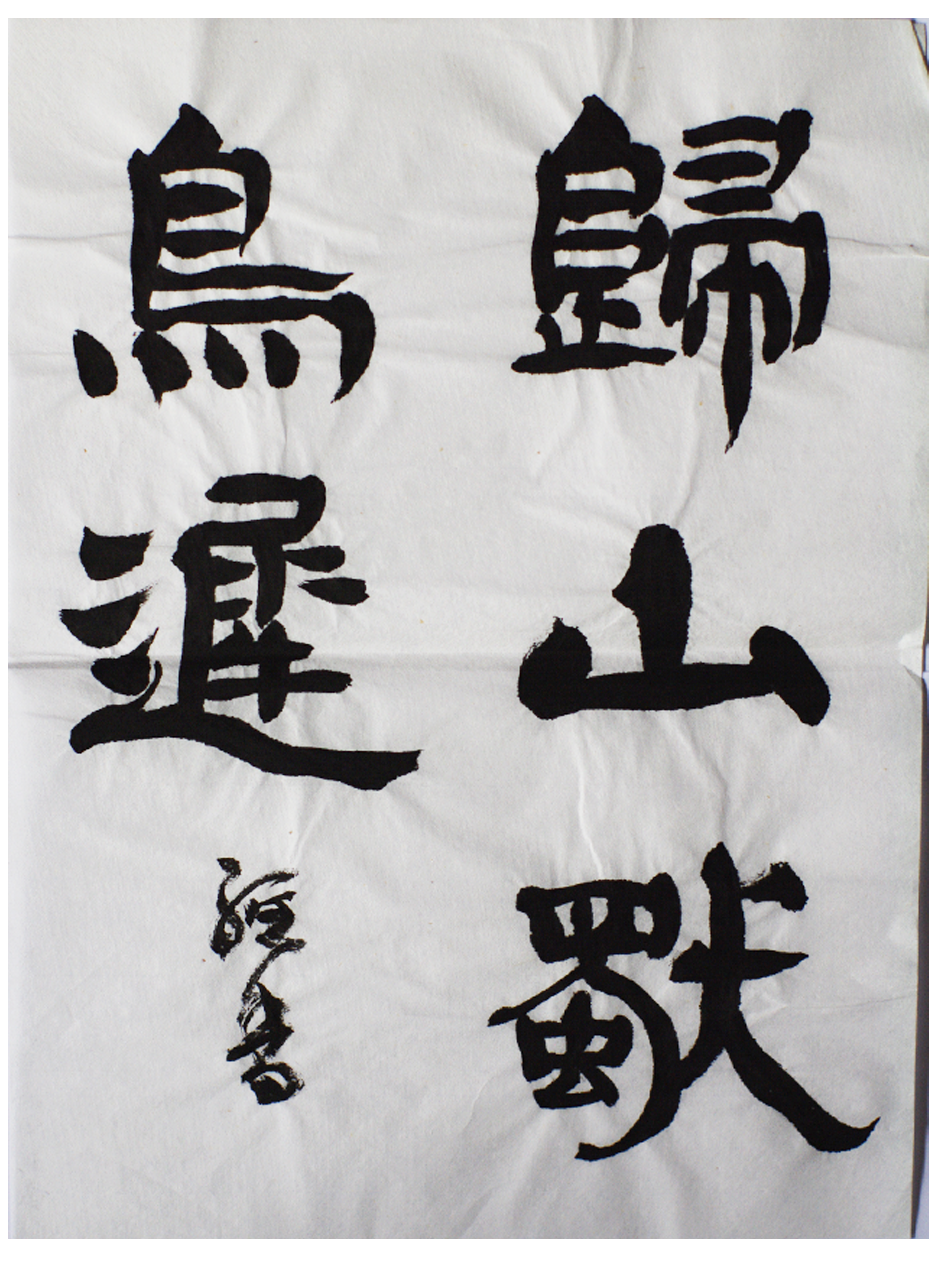 歸山獨
鳥遲
書